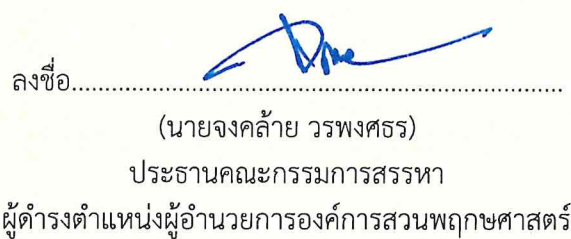 ลงชื่อ....................................................................
(นายจงคล้าย วรพงศธร)
ประธานคณะกรรมการสรรหา
ผู้ดำรงตำแหน่งผู้อำนวยการองค์การสวนพฤกษศาสตร์